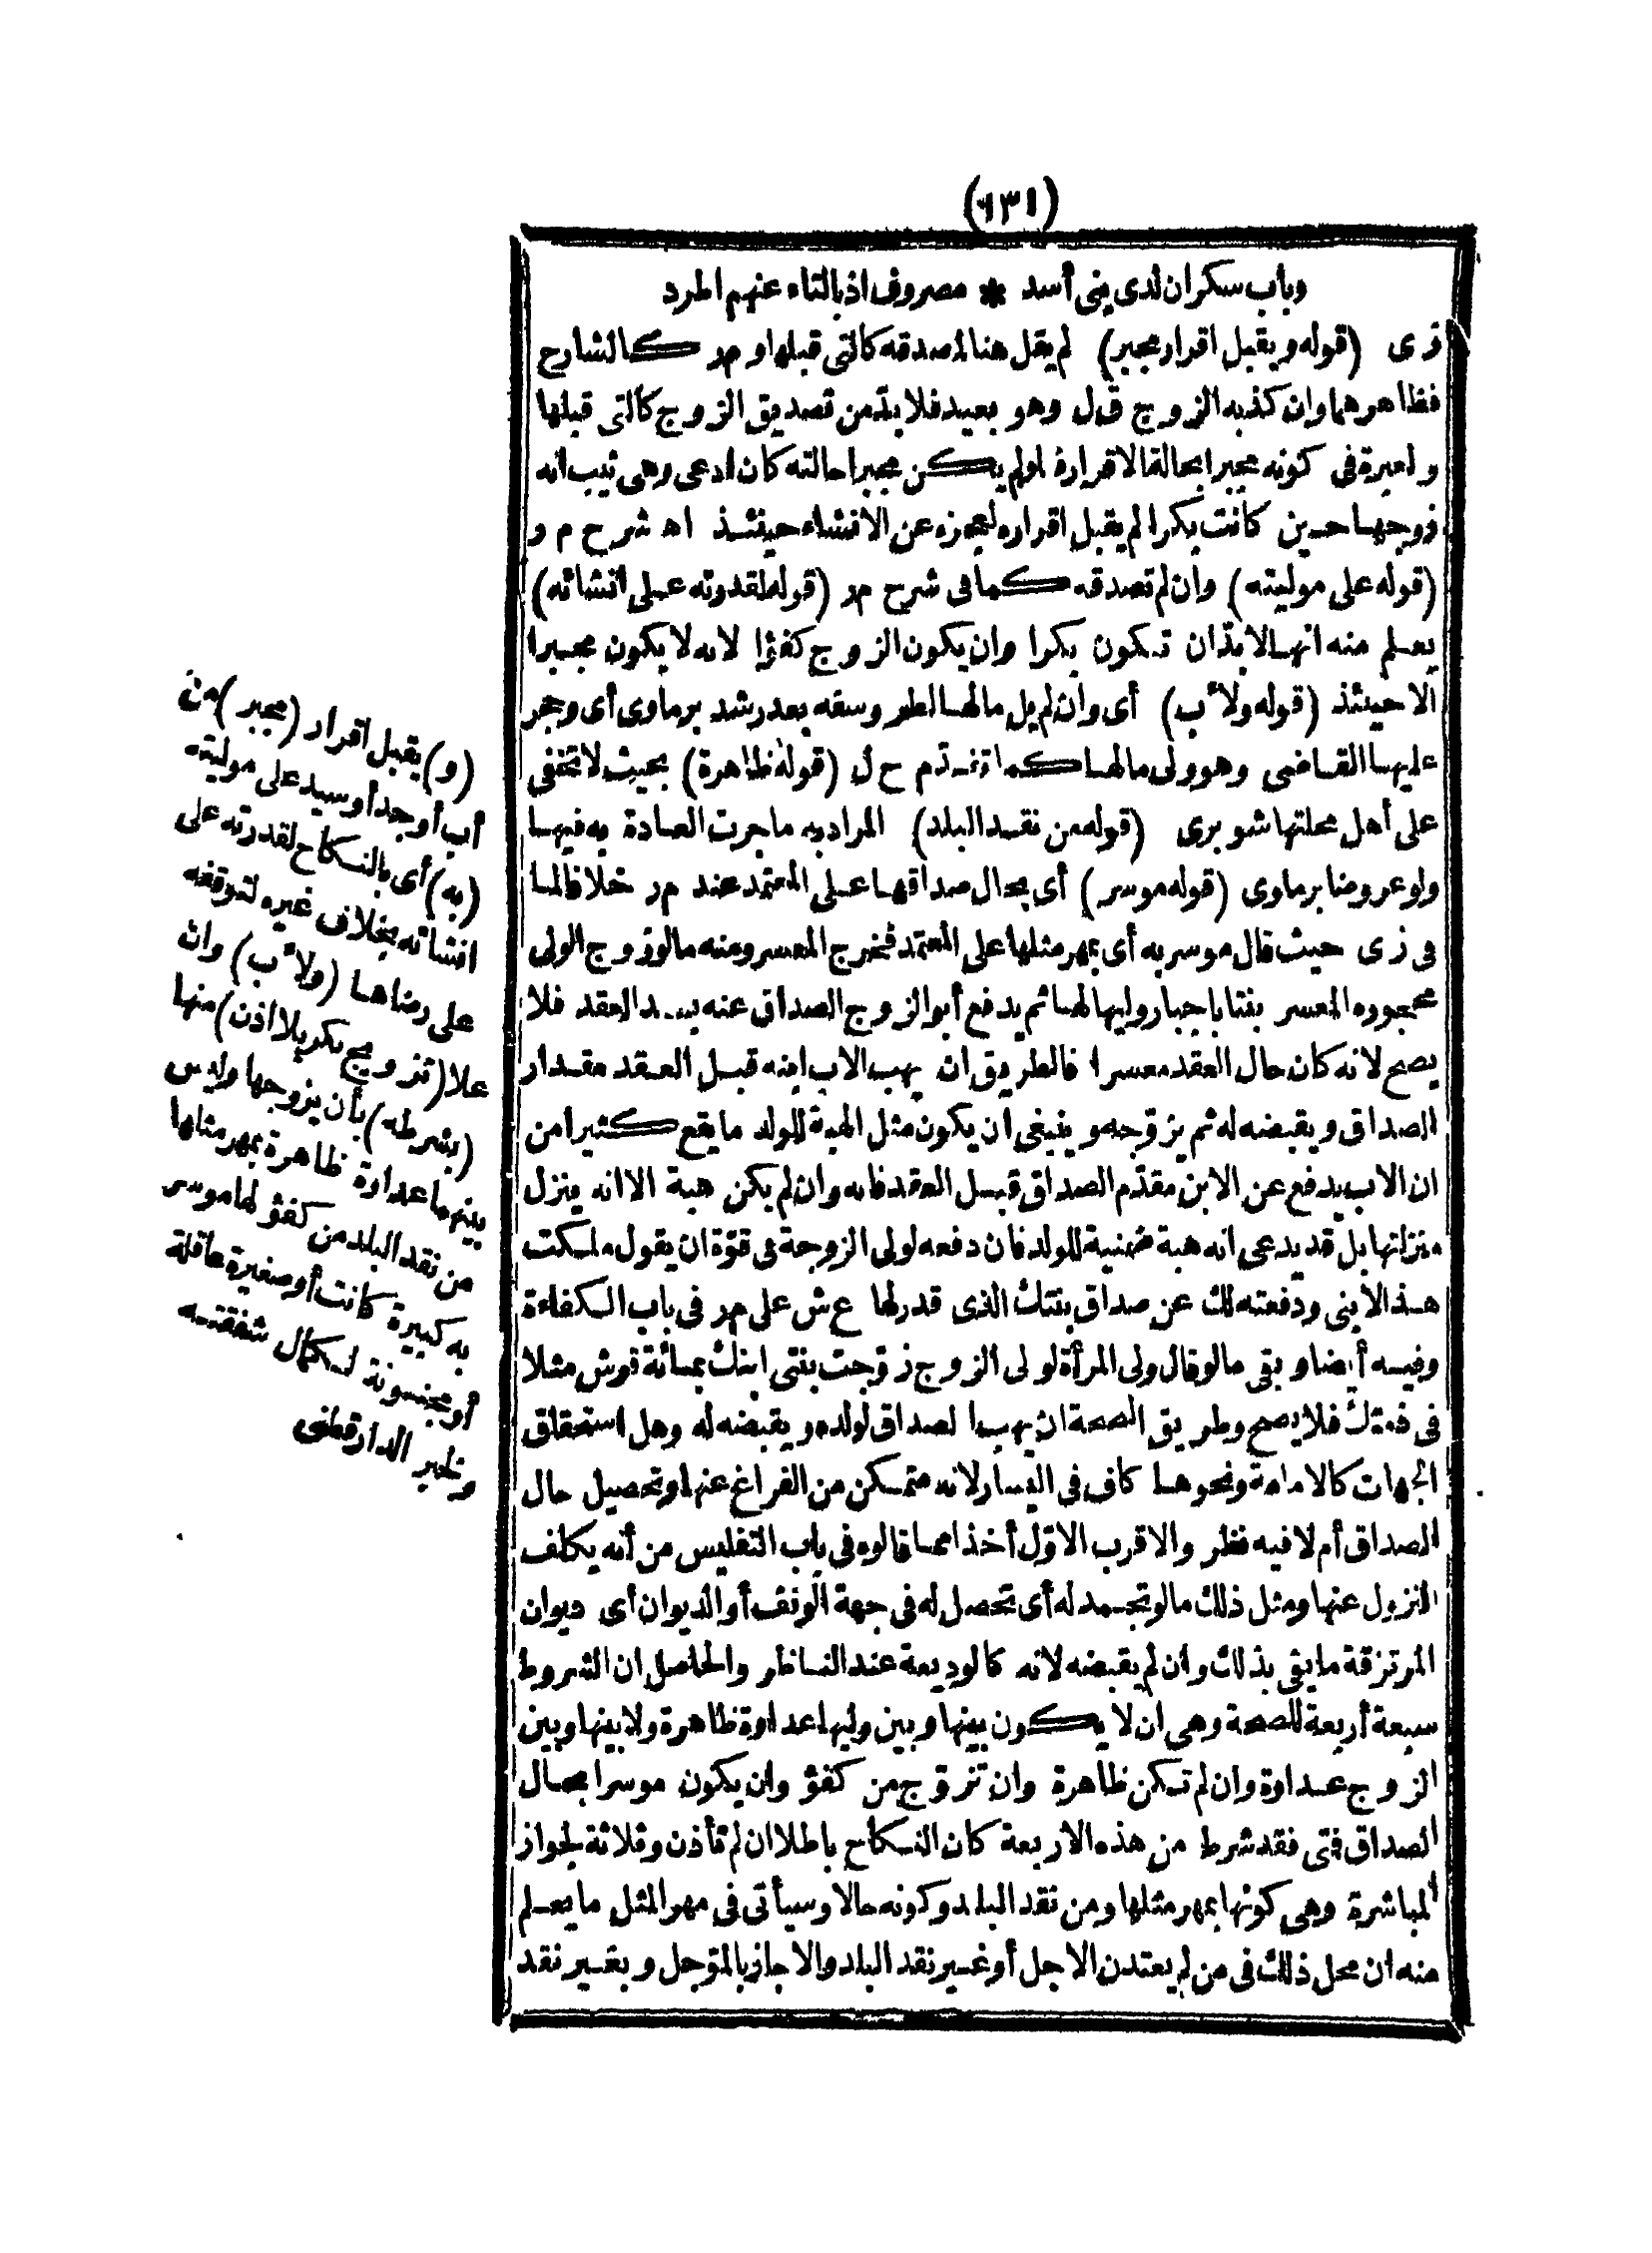 (٦٣١)
وباب سكران لدى بنى أسد * مصروف اذ بالتاء عنهم اطرد
زى (قوله ويقبل اقرار مجبر) لم يقل هنا لمصدقه كالتى قبلها و م ر كالشارح
فظاهرهما وان كذبه الزوج ق ل وهو بعيد فلا بدّ من تصديق الزوج كالتى قبلها
والعبرة فى كونه مجبرا بحالة الاقرار فلو لم يكن مجبرا حالته كان ادعى وهى ثيب انه
زوجها حين كانت بكرا لم يقبل اقراره لعجزه عن الانشاء حينئذ اه شرح م ر
(قوله على موليته) وان لم تصدقه كما فى شرح م ر (قوله لقدرته على انشائه)
يعلم منه انها لا بدّ ان تكون بكرا وان يكون الزوج كفؤا لانه لا يكون مجبرا
الا حينئذ (قوله ولأب) أى وان لم يل مالها لطرو سفه بعد رشد برماوى أى وحجر
عليها القاضى وهو ولى مالها كما تقدّم ح ل (قوله ظاهرة) بحيث لا تخفى
على أهل محلتها شوبرى (قوله من نقد البلد) المراد به ما جرت العادة به فيها
ولو عروضا برماوى (قوله موسر) أى بحال صداقها على المعتمد عند م ر خلافا لما
فى زى حيث قال موسر به أى بمهر مثلها على المعتمد فخرج المعسر ومنه ما لو زوج الولى
محجوره المعسر بنتا باجبار وليها لها ثم يدفع أبو الزوج الصداق عنه بعد العقد فلا
يصح لانه كان حال العقد معسرا فالطريق ان يهب الاب ابنه قبل العقد مقدار
الصداق ويقبضه له ثم يزوّجه وينبغى ان يكون مثل الهبة للولد ما يقع كثيرا من
ان الاب يدفع عن الابن مقدّم الصداق قبل العقد فانه وان لم يكن هبة الا انه ينزل
منزلتها بل قد يدعى انه هبة ضمنية للولد فان دفعه لولى الزوجة فى قوّة ان يقول ملكت
هذا لابنى ودفعته لك عن صداق بنتك الذى قدر لها ع ش على م ر فى باب الكفاءة
وفيه أيضا وبقى ما لو قال ولى المرأة لولى الزوج زوّجت بنتى ابنك بمائة قرش مثلا
فى ذمتك فلا يصح وطريق الصحة ان يهب الصداق لولده ويقبضه له وهل استحقاق
الجهات كالامامة ونحوها كاف فى اليسار لانه متمكن من الفراغ عنها وتحصيل حال
الصداق أم لا فيه نظر والاقرب الاوّل أخذا مما قالوه فى باب التفليس من أنه يكلف
النزول عنها ومثل ذلك ما لو تجمد له أى تحصل له فى جهة الوقف أو الديوان أى ديوان
المرتزقة ما يفى بذلك وان لم يقبضه لانه كالوديعة عند الناظر والحاصل ان الشروط
سبعة أربعة للصحة وهى ان لا يكون بينها وبين وليها عداوة ظاهرة ولا بينها وبين
الزوج عداوة وان لم تكن ظاهرة وان تزوّج من كفؤ وان يكون موسرا بحال
الصداق فتى فقد شرط من هذه الاربعة كان النكاح باطلا ان لم تأذن وثلاثة لجواز
المباشرة وهى كونها بمهر مثلها ومن نقد البلد وكونه حالا وسيأتى فى مهر المثل ما يعلم
منه ان محل ذلك فى من لم يعتدن الاجل أو غير نقد البلد والا جاز بالمؤجل وبغير نقد
(و) يقبل اقرار (مجبر) من
أب أو جد أو سيد على موليته
(به) أى بالنكاح لقدرته على
انشائه بخلاف غيره لتوقفه
على رضاها (ولأب) وان
علا (تزويج بكر بلا اذن) منها
(بشرطه) بأن يزوجها وليس
بينهما عداوة ظاهرة بمهر مثلها
من نقد البلد من كفؤ لها موسر
به كبيرة كانت أو صغيرة عاقلة
أو مجنونة لكمال شفقته
وخبر الدارقطنى